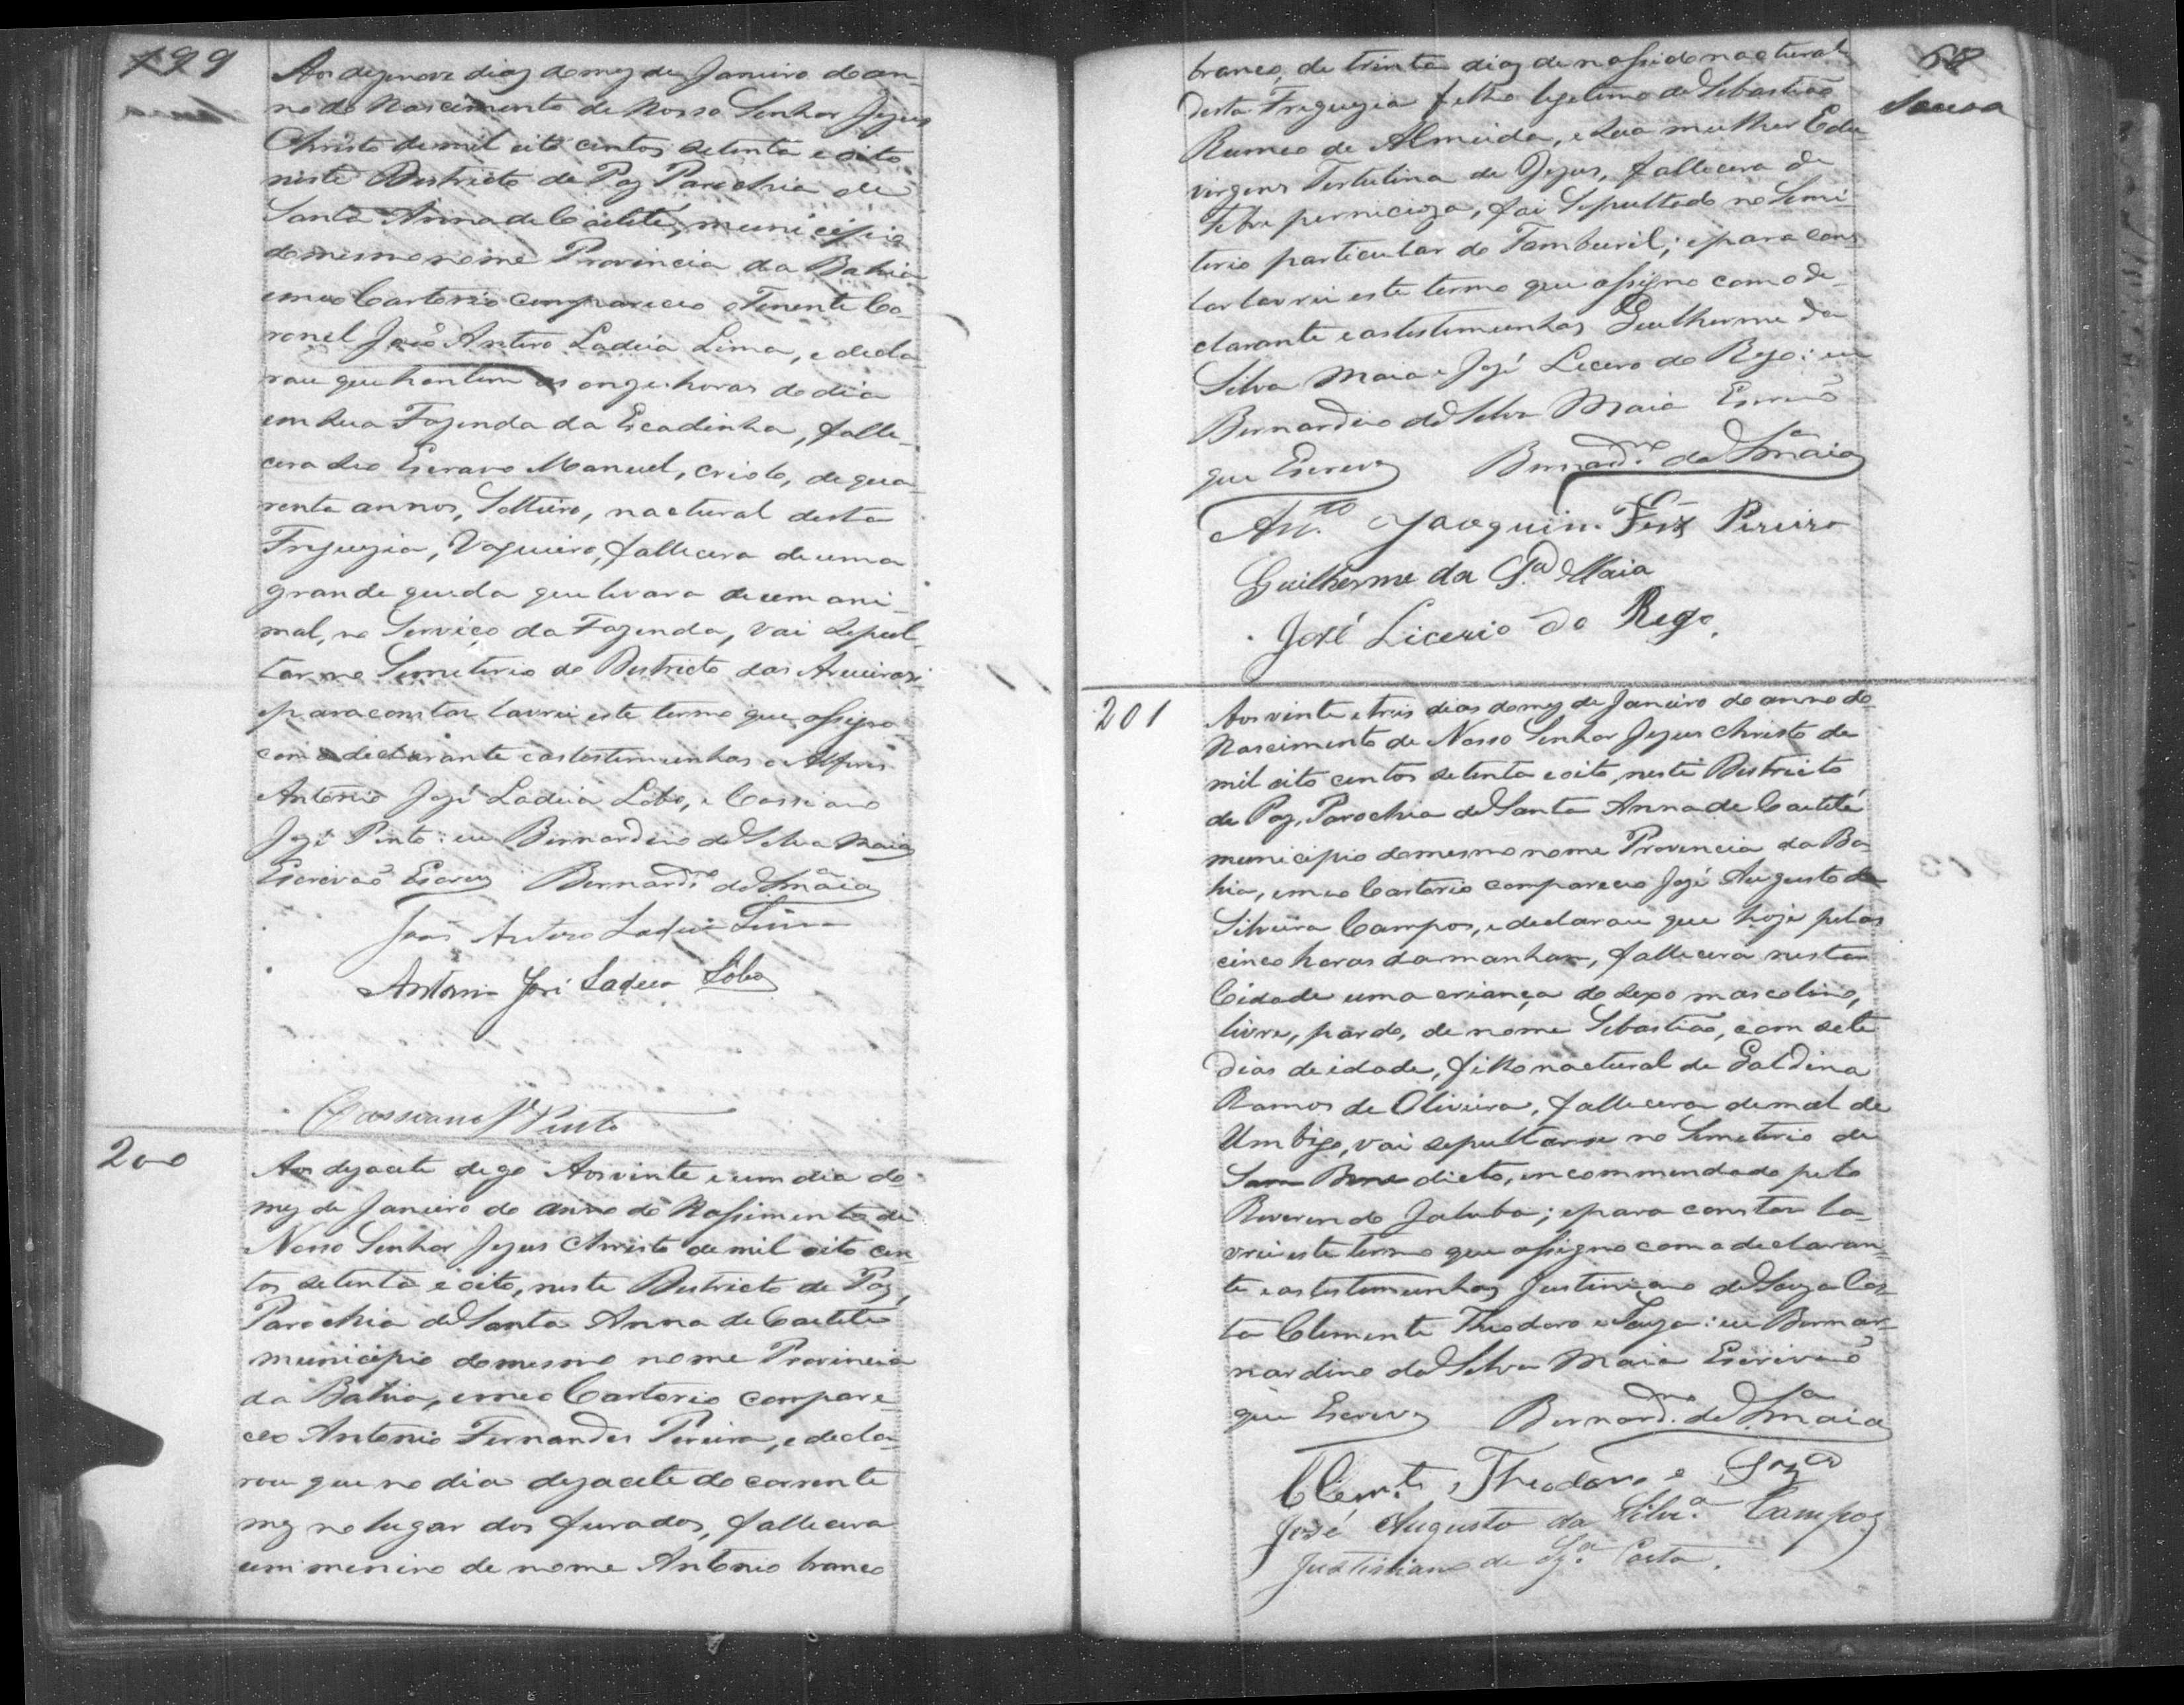 199
Aos dezenove dias do mez de Janeiro do an-
no do Nascimento de Nosso Senhor Jezus
Christo de mil oito centos setenta e oito
neste Destricto de Paz Parochia de
Santa Anna de Caêteté, municipio
do mesmo nome Provincia da Bahia
em meo Cartorio compareceo o Tenente Co-
ronel João Antero Ladeia Lima, e decla-
rou que hontem as onze horas do dia
em sua Fazenda da Escadinha, falle-
cera seo Escravo Manuel, criolo, de qua-
renta annos, Solteiro, nactural desta
Freguezia, Vaqueiro, fallecera de uma
grande queda que levara de um ani-
mal, no Serviço da Fazenda, vai Sepul-
tar no Semeterio do Destricto das
e para constar lavrei este termo que assigno
com o declarante e as testemunhas o Alferes
Antonio José Ladeia Lobo, e Cassiano
José Pinto: eu Bernardino da Silva Maia
Escrivaõ Escrevy Bernardno da Sa Maia
João Antero Ladeia Lima
Antonio José Ladeia Lobo
Cassiano J Pinto
200
Aos dezacete digo Aos vinte e um dia do
mez de Janeiro do anno do Nassimento de
Nosso Senhor Jezus Christo de mil oito cen-
tos setenta e oito, neste Destricto de Paz,
Parochia de Santa Anna de Caeteté
municipio do mesmo nome Provincia
da Bahia, em meo Cartorio compare-
ceo Antonio Fernandes Pereira, e decla-
rou que no dia dezacete do corrente
mez no lugar dos furados, fallecera
um menino de nome Antonio branco
68
Sousa
branco, de trinta dias de nassido nactural
desta Freguezia filho legetimo de Sebastião
Rumeo de Almeida, e sua mulher Edu
virgens Tertulina de Jezus, fallecera de
febre pernicioza, foi Sepultado no Semi-
terio particular do Tamburil; e para cons
tar lavrei este termo que assigno com o de-
clarante e as testemunhas Guilherme da
Silva Maia e José Lecero do Rego: eu
Bernardino da Silva Maia Escrivaõ
que Escrevy Bernardno da Sa Maia
Anto Joaquim Fers Pereira
Guilherme da Sa Maia
José Licerio do Rego.
201
Aos vinte e treis dias do mez de Janeiro do anno do
Nascimento de Nosso Senhor Jezus Christo de
mil oito centos setenta e oito, neste Destricto
de Paz, Parochia de Santa Anna de Caeteté
municipio do mesmo nome Provincia da Ba-
hia, em meo Cartorio compareceo José Augusto da
Silveira Campos, e declarou que hoje pelas
cinco horas da manhan, fallecera nesta
Cidade uma criança do sexo mascolino,
livre, pardo, de nome Sebastião, com sete
dias de idade, filho nactural de Galdina
Ramos de Oliveira, fallecera de mal de
Umbigo, vai sepultarse no Semeterio de
Sam Benedicto, encommendado pelo
Reverendo Jatuba; e para constar la-
vrei este termo que assigno com o declaran-
te e as testemunhas Justiniano de Souza Cos-
ta Clemente Theodoro e Souza: eu Bernar-
nardino da Silva Maia Escrivaõ
que Escrevy Bernardno da Sa Maia
Clemte Theodoro e Sza
José Augusto da Silvra Campos
Justiniano de Sza Costa.